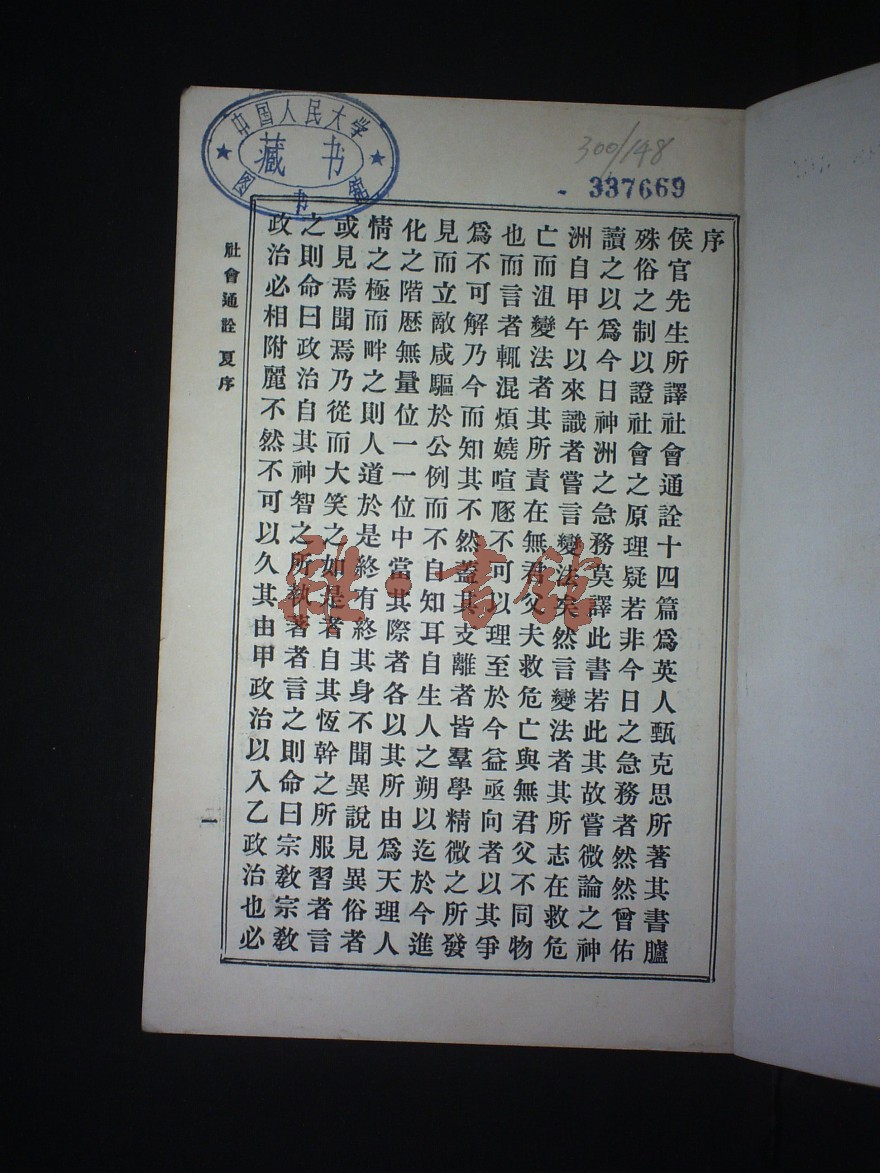 中国人民大学
藏书
图书馆
300/148
337669
序
侯官先生所譯社會通詮十四篇爲英人甄克思所著其書臚
殊俗之制以證社會之原理疑若非今日之急務者然然曾佑
讀之以爲今日神洲之急務莫譯此書若此其故嘗微論之神
洲自甲午以來識者嘗言變法矣然言變法者其所志在救危
亡而沮變法者其所責在無君父夫救危亡與無君父不同物
也而言者輒混煩嬈喧豗不可以理至於今益亟向者以其爭
爲不可解乃今而知其不然蓋其支離者皆羣學精微之所發
見而立敵咸驅於公例而不自知耳自生人之朔以迄於今進
化之階歷無量位一一位中當其際者各以其所由爲天理人
情之極而畔之則人道於是終有終其身不聞異說見異俗者
或見焉聞焉乃從而大笑之如是者自其恆幹之所服習者言
之則命曰政治自其神智之所執著者言之則命曰宗教宗教
政治必相附麗不然不可以久其由甲政治以入乙政治也必
社會通詮 夏序
一
雜·書館